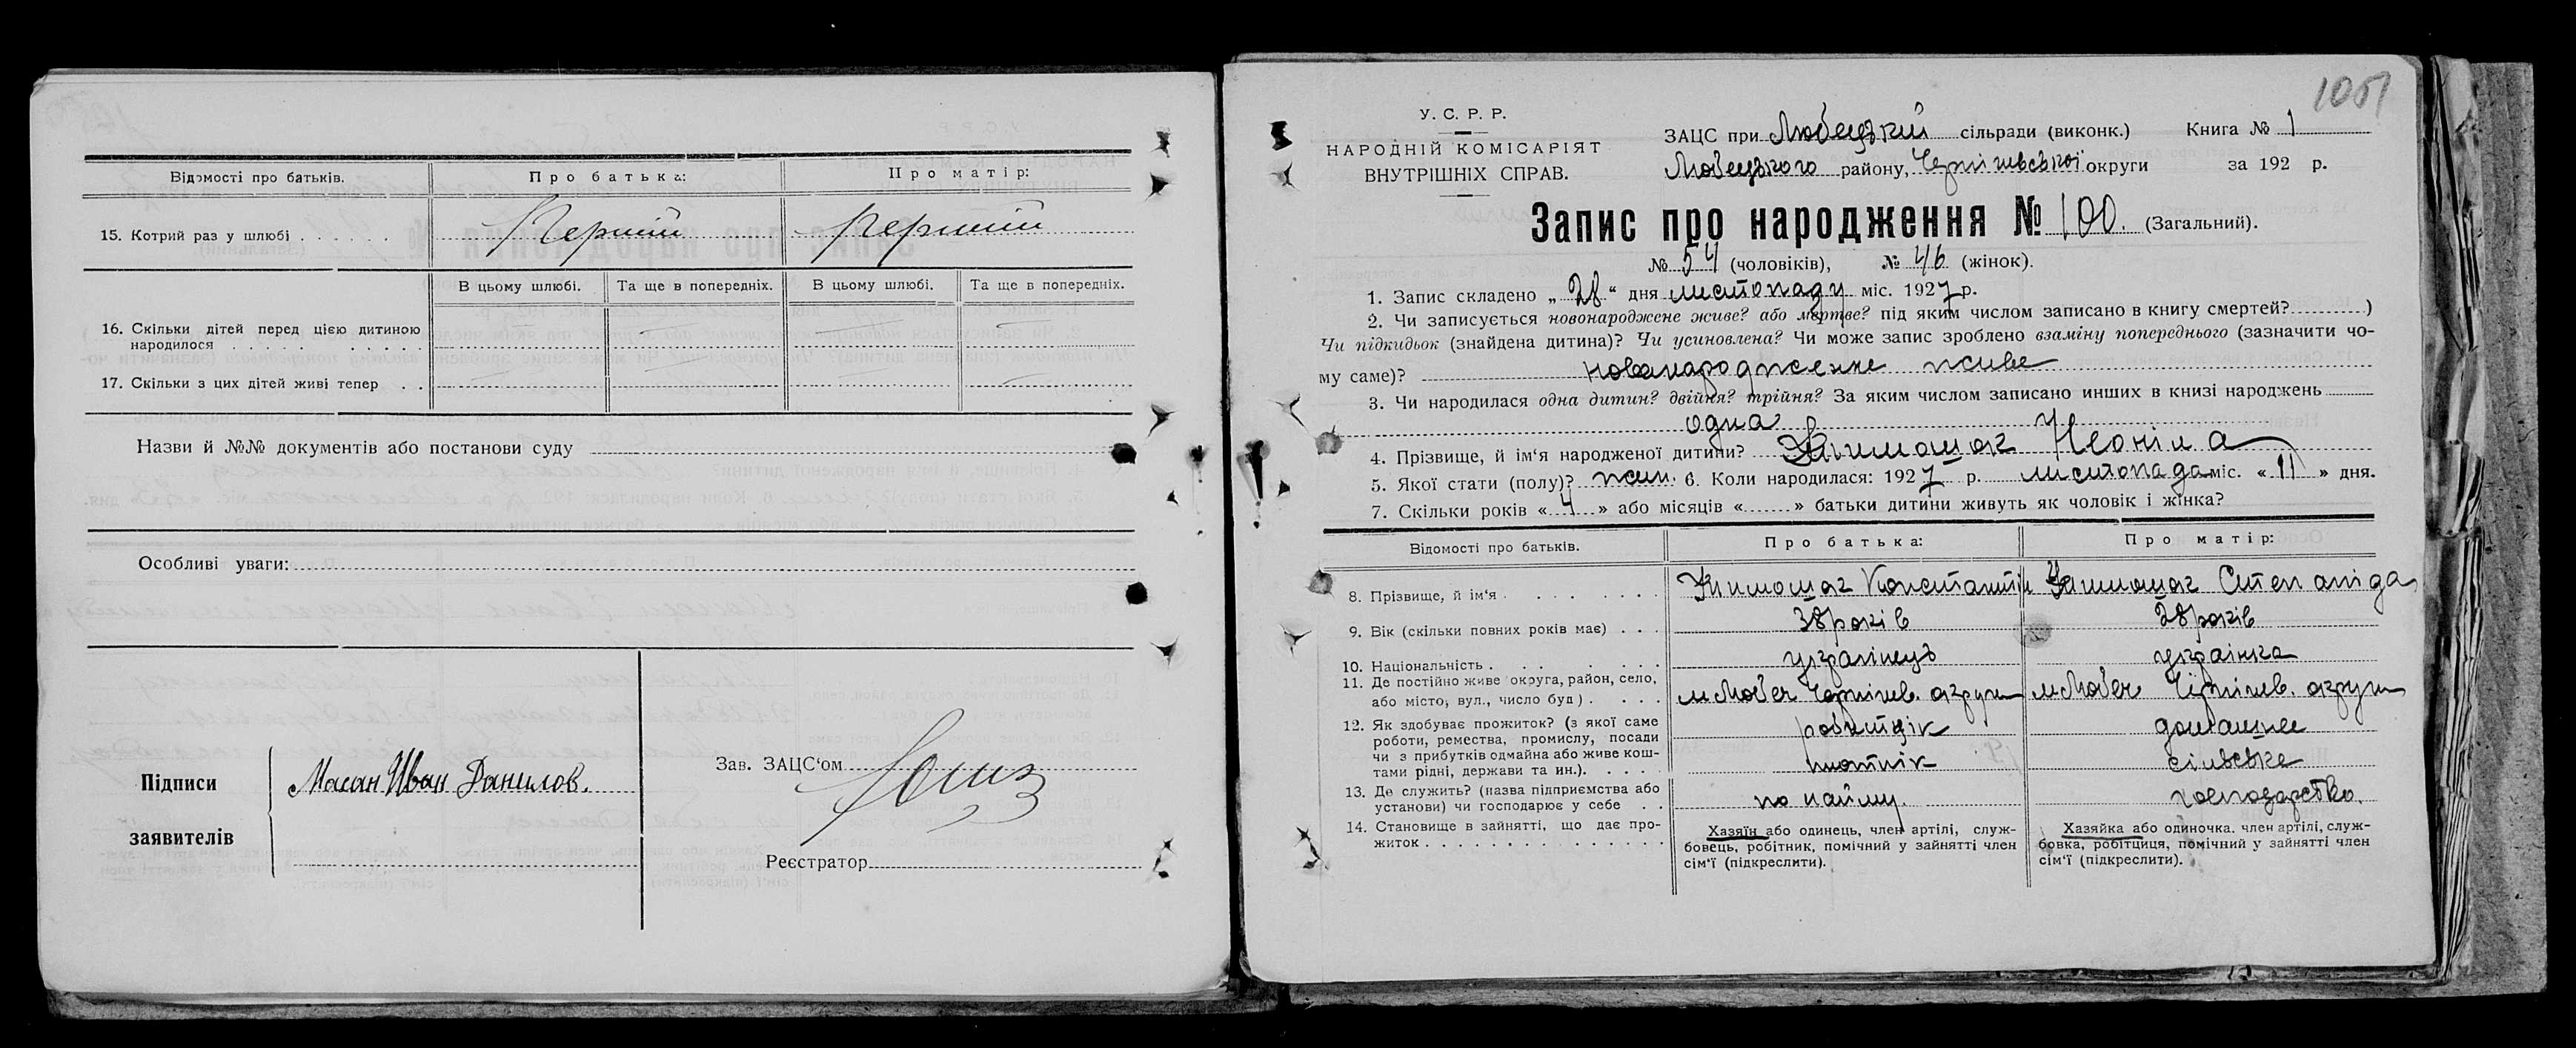 Відомості про батьків.
Про батька:
Про матір:
15. Котрий раз у шлюбі . . . . . .
Перший
перший
В цьому шлюбі.
Та ще в попередніх.
В цьому шлюбі.
Та ще в попередніх.
16. Скільки дітей перед цією дитиною
народилося . . . . . . . . . .
17. Скільки з цих дітей живі тепер . .
Назви й №№ документів або постанови суду
Особливі уваги:
Підписи
заявителів
Масан Иван Данилов.
Зав. ЗАЦС‘ом
Реєстратор
1051
У. С. Р. Р.
НАРОДНІЙ КОМІСАРІЯТ
ВНУТРІШНІХ СПРАВ.
ЗАЦС при Любецькій сільради (виконк.) Книга № 1
Любецького району, Чернігивської округи за 192 р.
Запис про народження № 100. (Загальний).
№ 54 (чоловіків), № 46 (жінок).
1. Запис складено „ 28 “ дня листопаду міс. 1927 р.
2. Чи записується новонароджене живе? або мертве? під яким числом записано в книгу смертей? )
Чи підкидьок (знайдена дитина)? Чи усиновлена? Чи може запис зроблено взаміну попереднього (зазначити чо-
му саме)? новонародженне живе
3. Чи народилася одна дитин? двійня? трійня? За яким числом записано инших в книзі народжень
одна
4. Прізвище, й ім‘я народженої дитини? Неоніла
5. Якої стати (полу)? жін. 6. Коли народилася: 1927 р. листопада міс. « 11 » дня.
7. Скільки років « 4 » або місяців « » батьки дитини живуть як чоловік і жінка?
Відомості про батьків.
Про батька:
Про матір:
8. Прізвище, й ім‘я . . . . . . .
Константін
Степаніда
9. Вік (скільки повних років має) . . .
38 років
28 років
10. Національність . . . . . . .
українець
українка
11. Де постійно живе округа, район, село,
або місто, вул., число буд) . . . .
м Любеч Чернігив. округи
м Любеч Чернігив. округи
12. Як здобуває прожиток? (з якої саме
роботи, ремества, промислу, посади
чи з прибутків одмайна або живе кош-
тами рідні, держави та ин.). . . . .
робитнік
плотнік
домашнее
сільське
13. Де служить? (назва підприємства або
установи) чи господарює у себе . .
по найму.
господарство.
14. Становище в зайнятті, що дає про-
житок . . . . . . . . . . . . . . . .
Хазяїн або одинець, член артілі, служ-
бовець, робітник, помічний у зайнятті член
сім‘ї (підкреслити).
Хазяйка або одиночка. член артілі, служ-
бовка, робітциця, помічний у зайнятті член
сім‘ї (підкреслити).